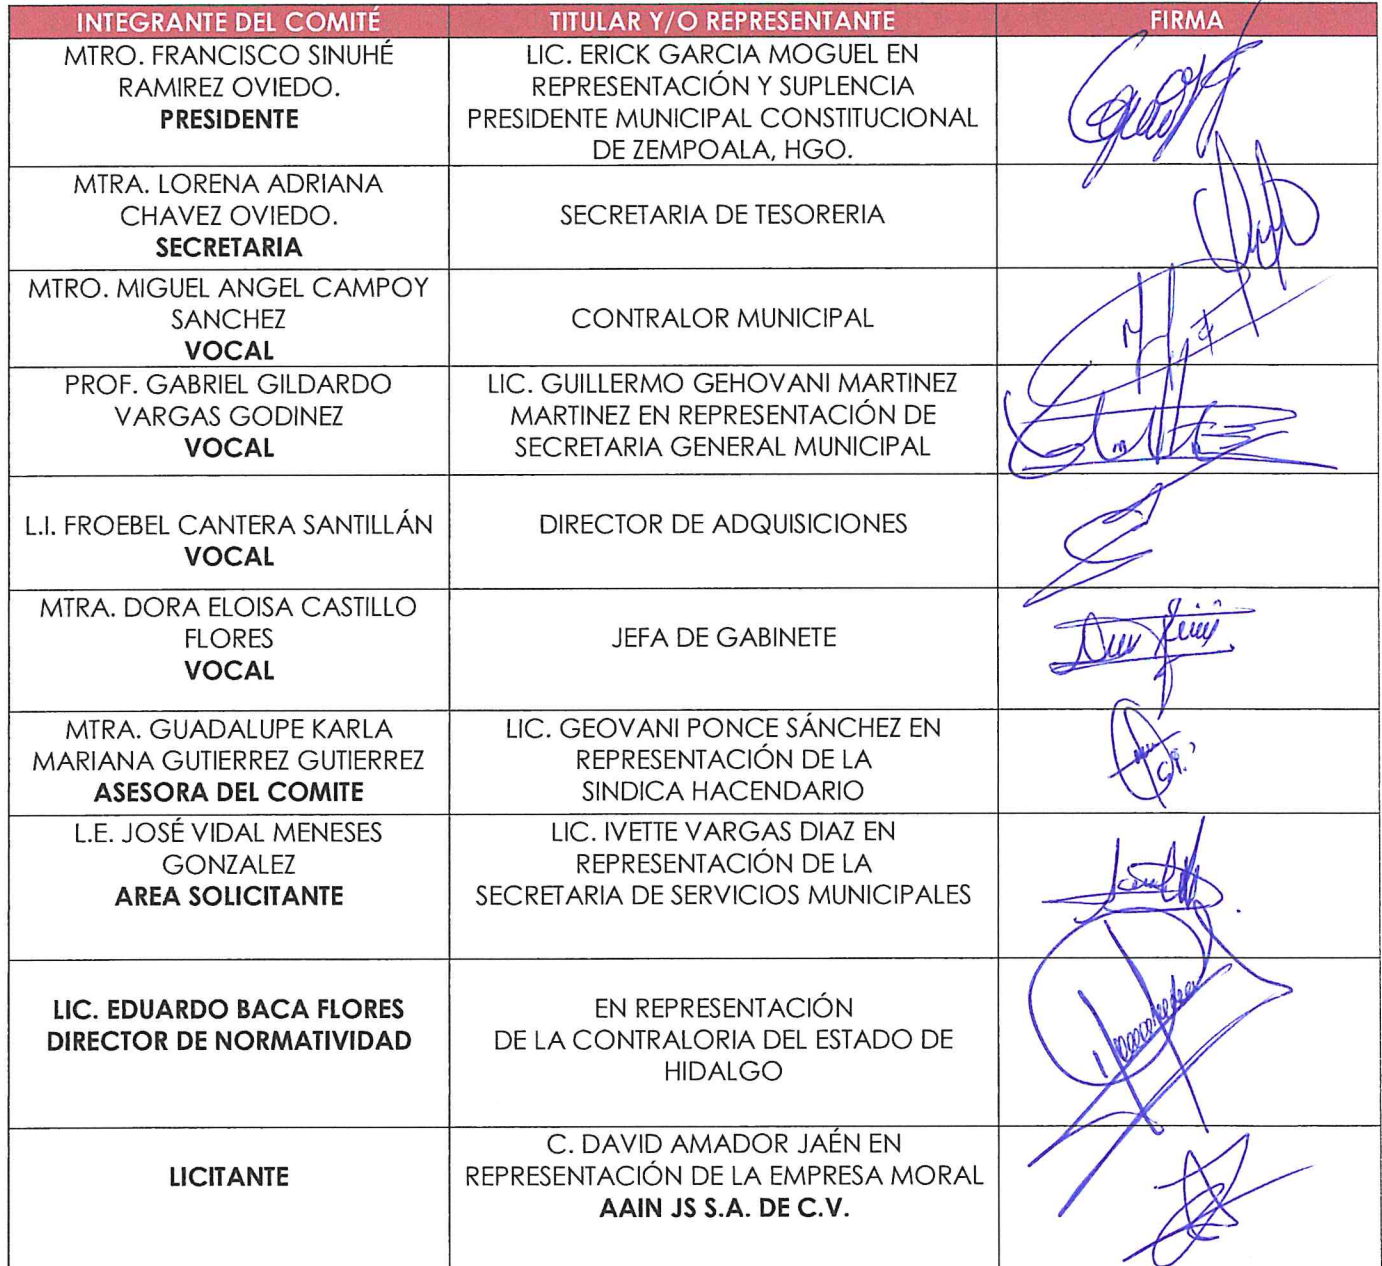 INTEGRANTE DEL COMITÉ TITULAR Y/O REPRESENTANTE FIRMA
MTRO. FRANCISCO SINUHÉ
RAMIREZ OVIEDO.
PRESIDENTE
LIC. ERICK GARCIA MOGUEL EN
REPRESENTACIÓN Y SUPLENCIA
PRESIDENTE MUNICIPAL CONSTITUCIONAL
DE ZEMPOALA, HGO.
MTRA. LORENA ADRIANA
CHAVEZ OVIEDO.
SECRETARIA
SECRETARIA DE TESORERIA
MTRO. MIGUEL ANGEL CAMPOY
SANCHEZ
VOCAL
CONTRALOR MUNICIPAL
PROF. GABRIEL GILDARDO
VARGAS GODINEZ
VOCAL
LIC. GUILLERMO GEHOVANI MARTINEZ
MARTINEZ EN REPRESENTACIÓN DE
SECRETARIA GENERAL MUNICIPAL
L.I. FROEBEL CANTERA SANTILLÁN
VOCAL
DIRECTOR DE ADQUISICIONES
MTRA. DORA ELOISA CASTILLO
FLORES
VOCAL
JEFA DE GABINETE
MTRA. GUADALUPE KARLA
MARIANA GUTIERREZ GUTIERREZ
ASESORA DEL COMITE
LIC. GEOVANI PONCE SÁNCHEZ EN
REPRESENTACIÓN DE LA
SINDICA HACENDARIO
L.E. JOSÉ VIDAL MENESES
GONZALEZ
AREA SOLICITANTE
LIC. IVETTE VARGAS DIAZ EN
REPRESENTACIÓN DE LA
SECRETARIA DE SERVICIOS MUNICIPALES
LIC. EDUARDO BACA FLORES
DIRECTOR DE NORMATIVIDAD
EN REPRESENTACIÓN
DE LA CONTRALORIA DEL ESTADO DE
HIDALGO
LICITANTE
C. DAVID AMADOR JAÉN EN
REPRESENTACIÓN DE LA EMPRESA MORAL
AAIN JS S.A. DE C.V.